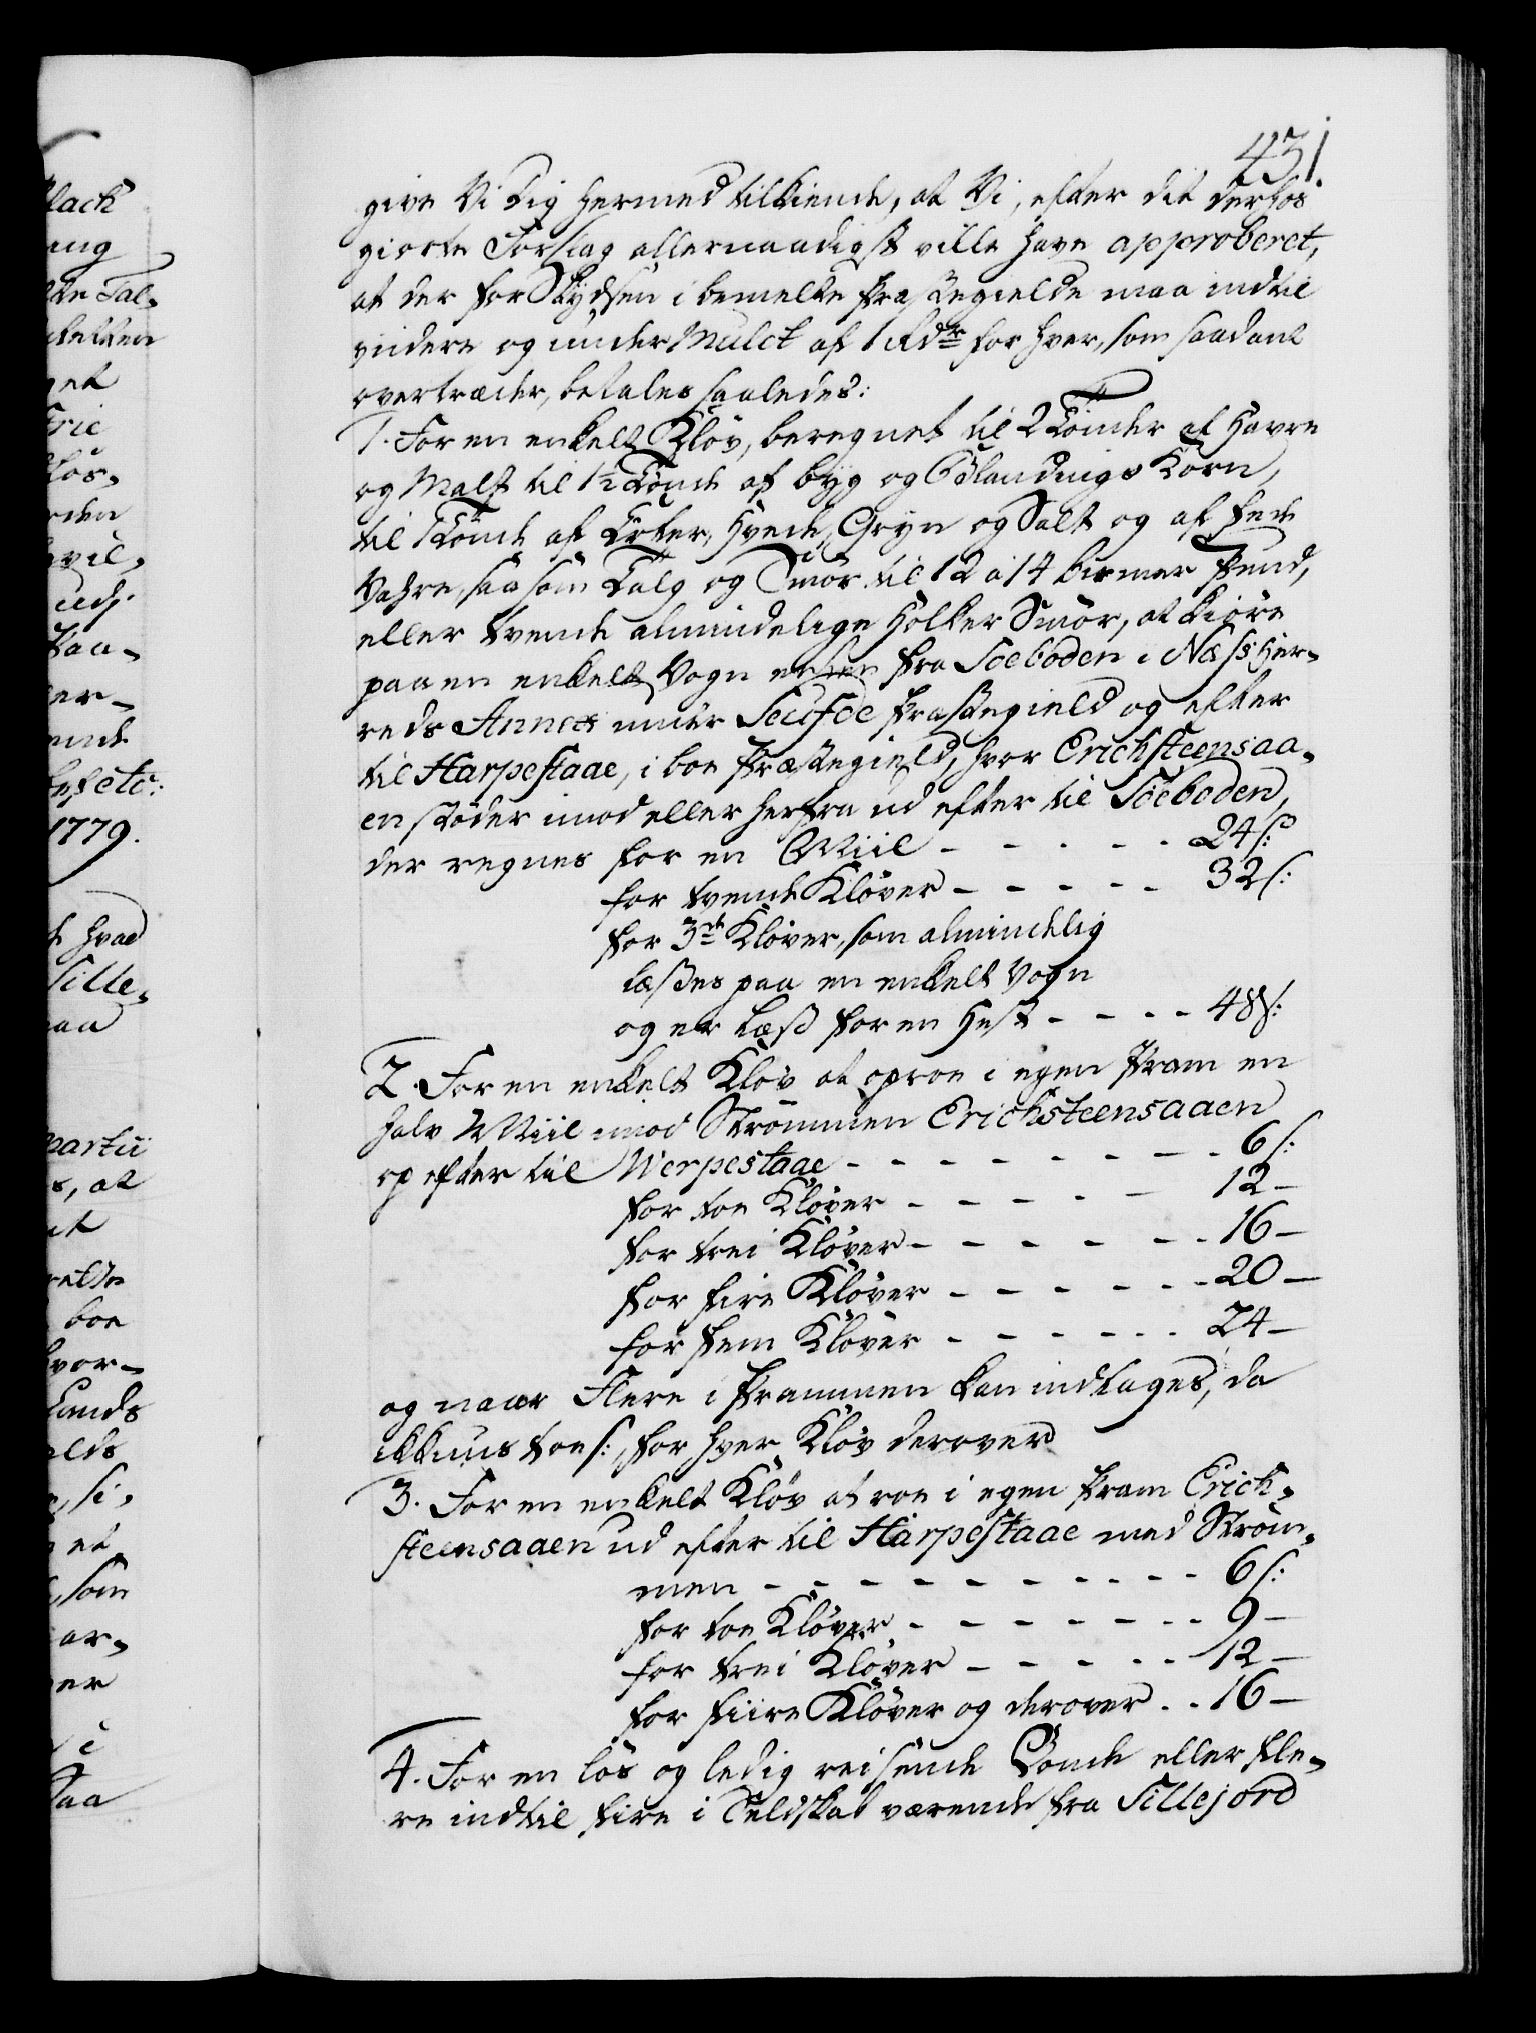 431
give Vi dig hermed tilkiende, at Vi, efter dit derhos
giorte Forslag allernaadigst ville have approberet,
at der for Skydsen i bemelte Præstegield maa indtil
videre og under Mulct af 1 Rdr for hver, som saadant
overtræder, betales saaledes:
1. For en enkelt Kløv, beregnet til 2 Tönder af Havre
og Malt til 1½ Tönde af byg og Blandings Korn,
til 1 Tönde af Erter, Hvede, Gryn og Salt og af fede
Vahre, saasom Talg og Smör til 12 à 14 bismer Pund,
eller tvende almindelige Holker Smör, at kiöre
paa en enkelt Vogn enten fra Söeboden i Næssher-
reds Annex under Seufde Præstegield og efter
til Harpestaae, i boe Præstegield, hvor Erichsteensaa-
en støder imod eller herfra ud efter til Söeboden,
der regnes for en Miil - - - - - 24 s:
for tvende Kløver - - - - - 32 s:
for 3de Kløver, som almindelig
læsses paa en enkelt Vogn
og er Læss for en Hest - - - - 48 s:
2. For en enkelt Kløv at oproe i egen Pram en
halv Miil imod Strømmen Erichsteensaaen
op efter til Werpestaae - - - - - - - - 6 s:
for toe Kløver - - - - - 12 -
for trei Kløver - - - - - - 16 -
for fire Kløver - - - - - - 20 -
for fem Kløver - - - - - - 24 -
og naar Flere i Prammen kan indtages, da
ikkuns toe s:, for hver Kløv derover
3. For en enkelt Kløv at roe i egen Pram Erich-
steensaaen ud efter til Harpestaae med Strøm-
men - - - - - - - - - - 6 s:
for toe Kløver - - - - - - - 9 -
for trei Kløver - - - - - 12 -
for fiire Kløver og derover - - 16 -
4. For en lös og ledig reisende Bonde eller fle-
re indtil fire i Seldskab værende fra Sillejord